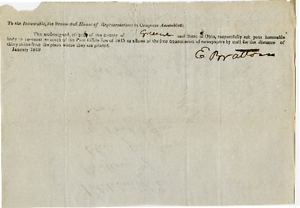 To the Honorable, the Senate and House of Representatives in Congress Assembled:
The undersigned, of the County of Greene and State of Ohio, respectfully ask your honorable
body to of the Post Office law of 1845 as allows of the free transmission of newspapers by mail for the distance of
thirty miles from the place where they are printed.
January 1849
E Bratton